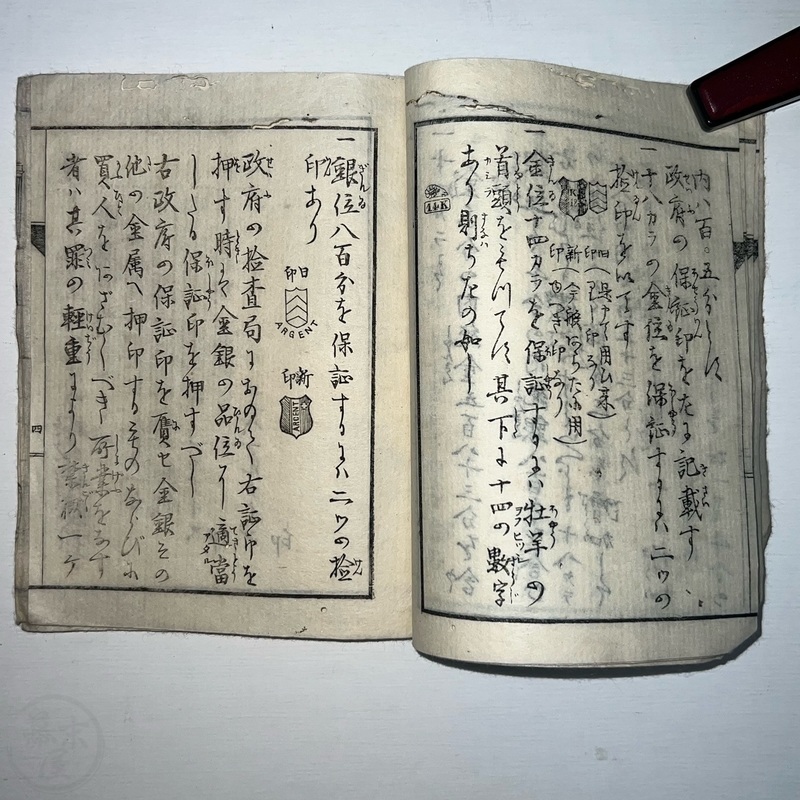 内八百〇五分とす
政府の保証印を左に記載す
一十八カラの金位を保証するにハ二ツの
検印を以てす
旧印(是まで用ひ来
新印(今般あらた不用
一金位十四カラを保証するにハ牡羊の
首頭を以てす其下に十四の數字
あり則ち左の如し
14K
一銀位八百分を保証するにハ二ツの検
印あり
旧印
ARGENT
新印
ARGENT
政府の検査局におゐて右証印を
押す時ハ金銀の品位に適當
したる保証印を押すべし
右政府の保証印を贋せ金銀その
他の金属へ押印するものならびに
買人をあざむくべき所業をなす
者ハ其罪の軽重により
一ケ
四